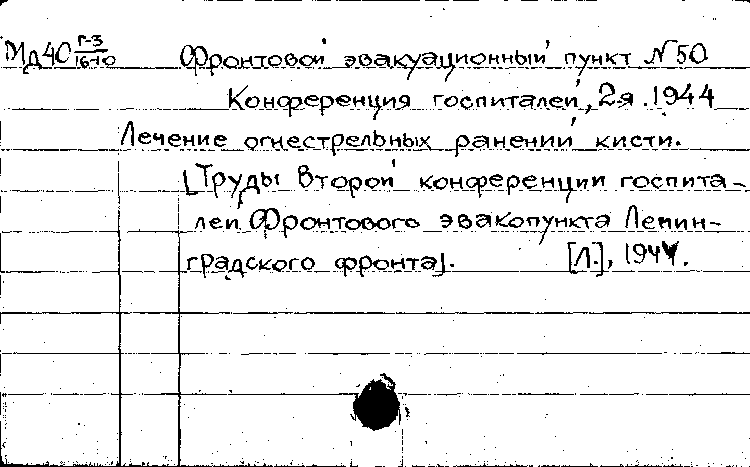 Мд40 Г-3/16-10 Фронтовой эвакуационный пункт N50
Конференция госпиталей, 2-я. 1944
Лечение огнестрельных ранений кисти.
[Труды второй конференции госпита-
лей Фронтового эвакопункта Ленин-
градского фронта]. [Л.], 1944.